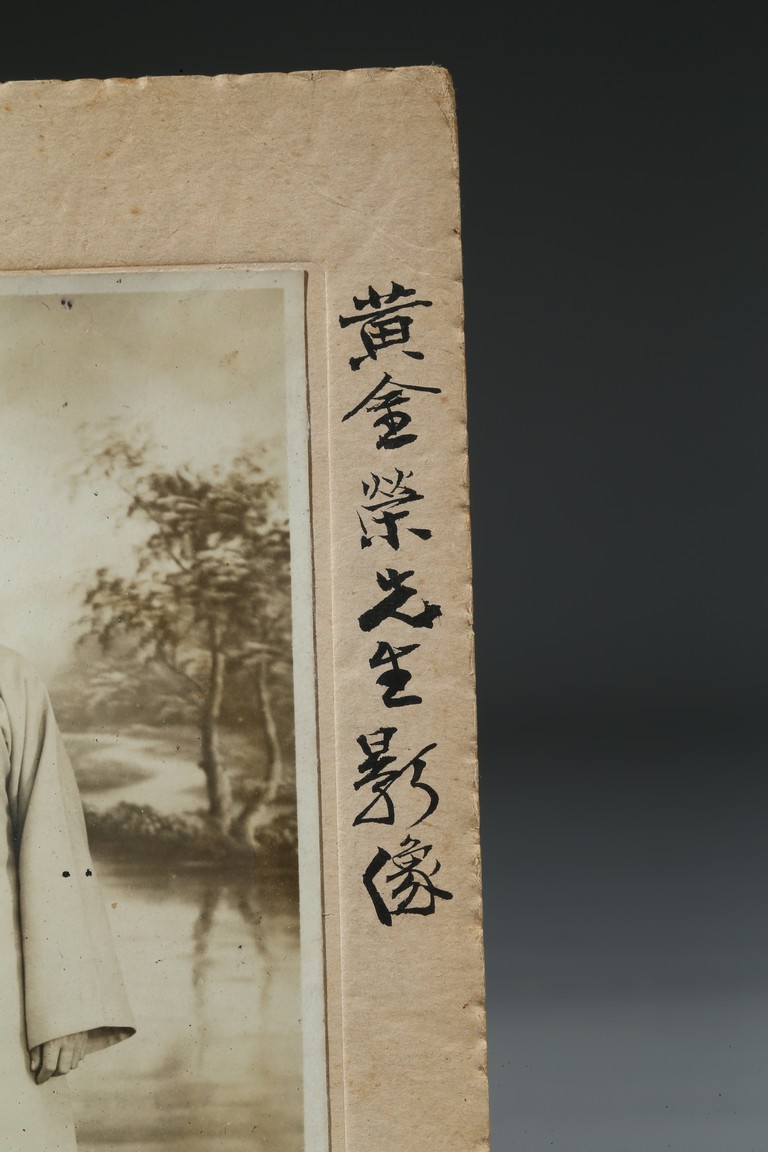 黃金榮先生影像